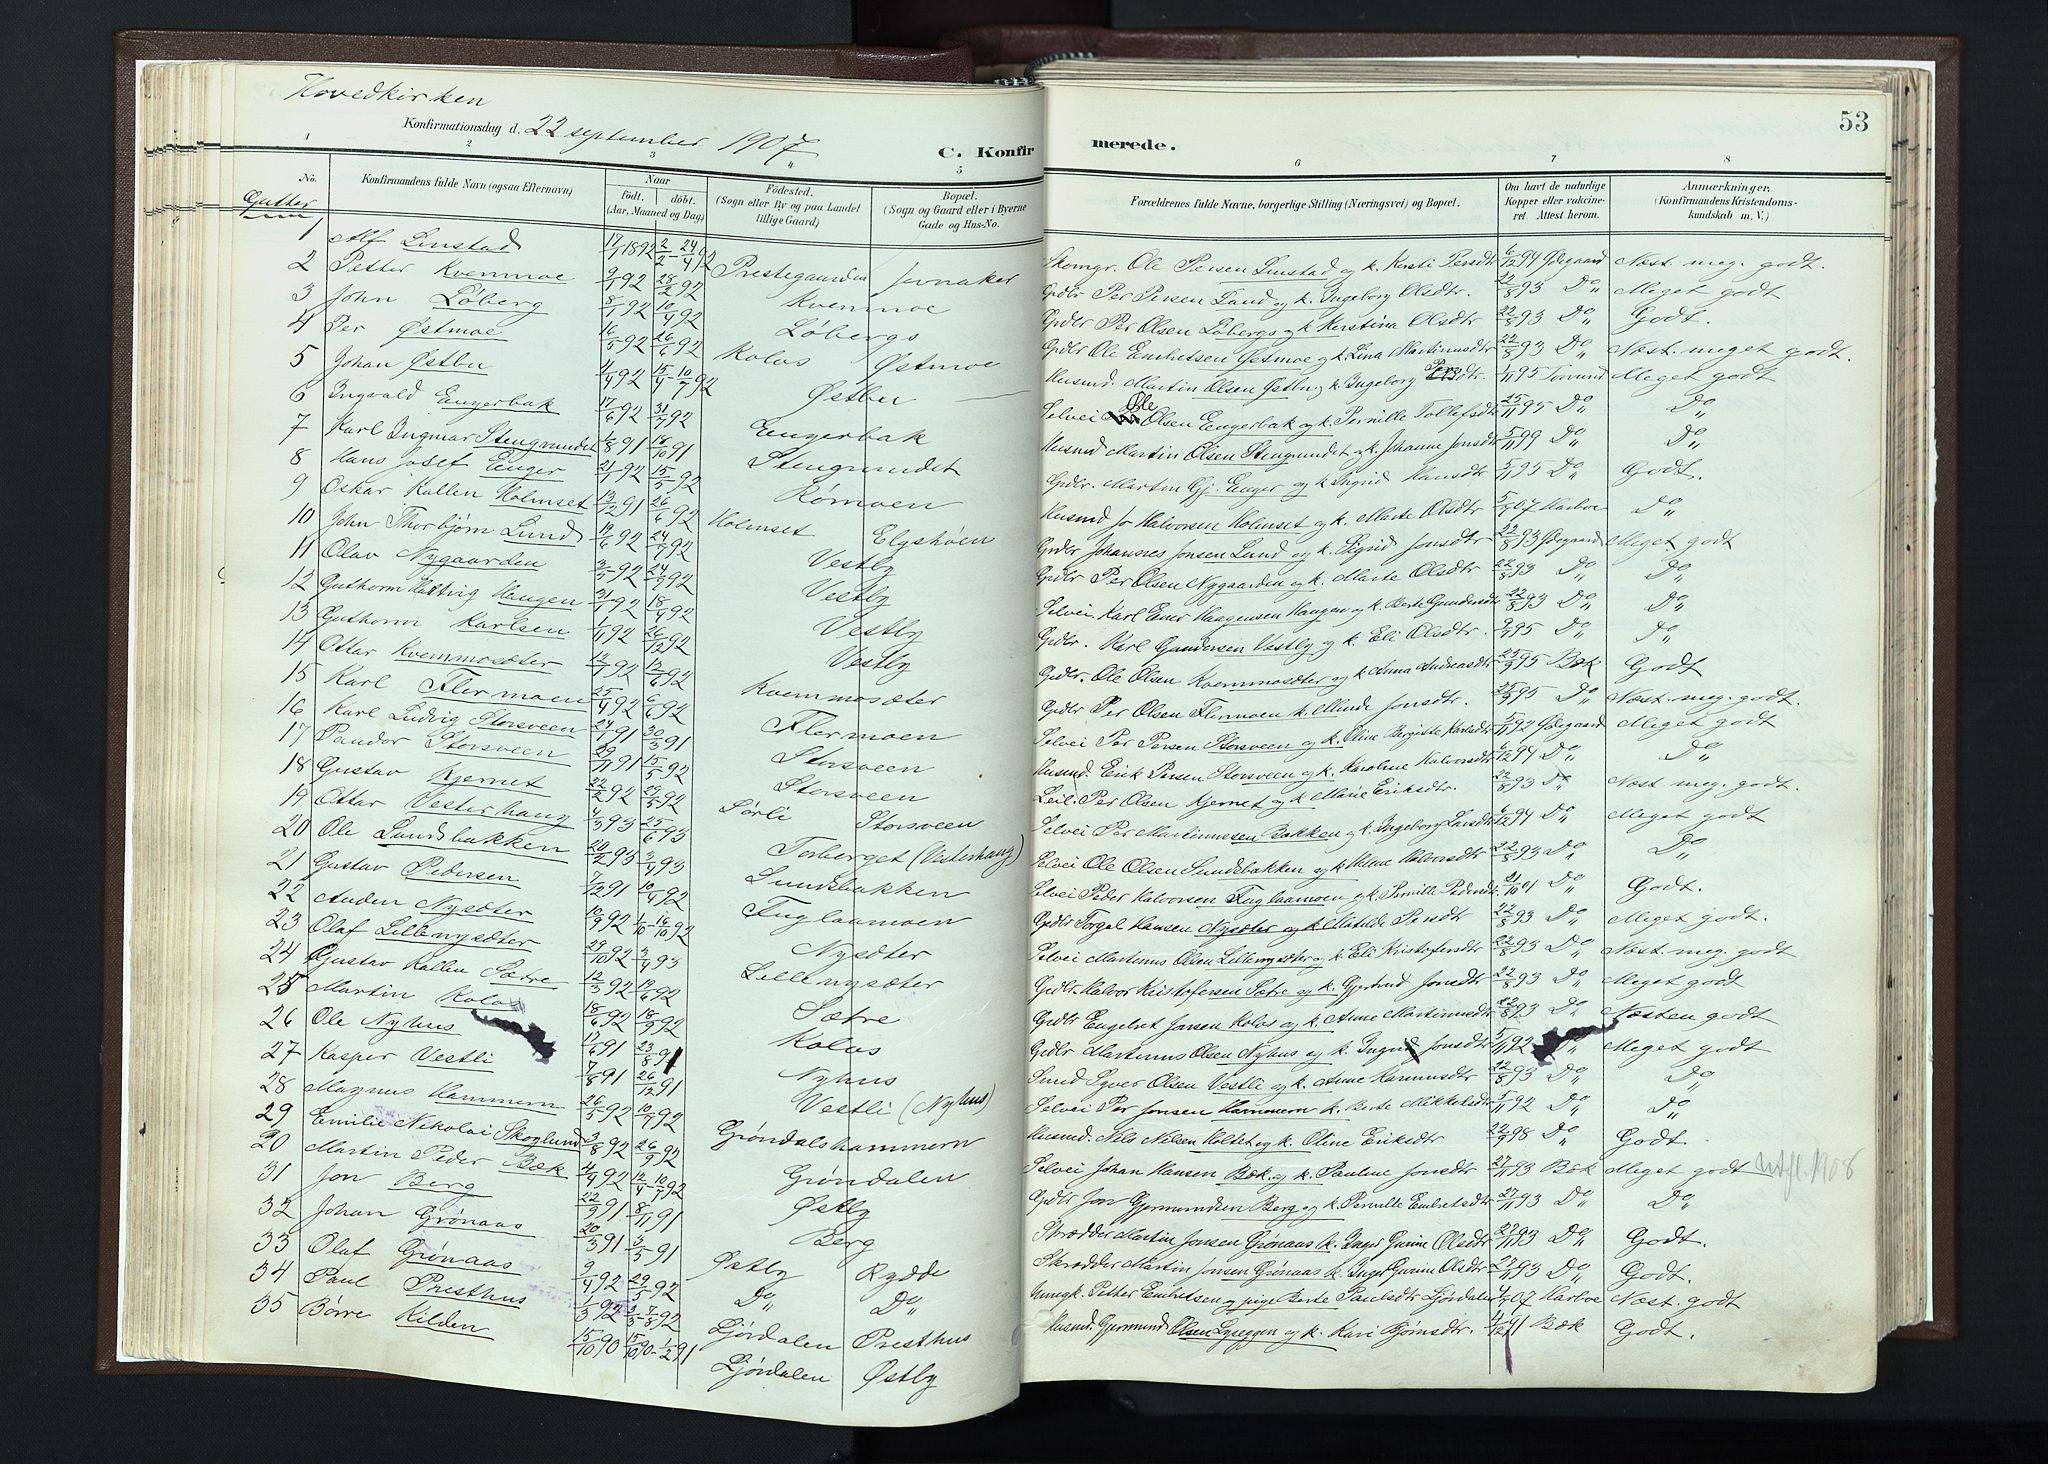 Hovedkirken
Konfirmationsdag d. 22 september 1907
C. Konfirmerede.
53
1 2 3 4 5 6 7 8
No. Konfirmandens fulde Navn (ogsaa Efternavn) Naar Født. døbt. (Aar, Maaned og Dag) Fødested. (Sogn eller By og paa Landet tillige Gaard) Bopæl. (Sogn og Gaard eller i Byerne Gade og Hus-No. Forældrenes fulde Navne, borgerlige Stilling (Næringsvei) og Bopæl. Om havt de naturlige Kopper eller vaccineret. Attest herom. Anmærkninger. (Konfirmandens Kristendomskundskab m. V.)
Gutter
1 Alf Linstad 17/1 1892 2/2 - 24/4 92 Prestegaarden Skomgr. Ole Persen Linstad og k. Kersti Persdtr 6/12 94 Ødegaard Næst. meg. godt.
2 Petter Kvemmoe 9/1 92 28/2 92 Kvemmoe Grdbr Per Persen Lund og k. Ingeborg Olsdtr. 22/8 93 Do Meget godt
3 John Løberg 8/1 92 10/4 92 Løbergs Grdbr Per Olsen Løbergs og k. Kerstina Olsdtr 22/8 93 Do Godt.
4 Per Østmoe 16/5 92 26/6 92 Kolos Østmoe Grdbr Ole Embretsen Østmoe og k. Lina Martinusdtr 22/8 93 Do Næst. meget godt.
5 Johan Østbu 4/4 92 15/4 - 10/7 92 Østbu Husmd. Martin Olsen Østbu og k. Ingeborg Persdtr. 1/11 95 Meget godt
6 Ingvald Engerbak 17/6 92 31/7 92 Engerbak Selvei Ole Olsen Engerbak og k. Pernille Tollefsdtr 25/11 95 Do Do
7 Karl Ingmar Stengrundet 1/8 91 18/10 91 Stengrundet Husmd Martin Olsen Stengrundet og k. Johanne Jonsdtr 5/11 99 Do Do
8 Hans Josef Enger 21/1 92 15/5 92 Rømoen Grdbr. Martin Gj. Enger og k. Ingrid Hansdtr 1/11 95 Do Godt.
9 Oskar Kallen Holmset 13/12 91 26/6 92 Holmset Elgshøen Husmd Jo Halvorsen Holmset og k. Marte Olsdtr 5/5 07 Harboe Do
10 John Thorbjørn Lund 19/6 92 24/7 92 Vestby Grdbr Johannes Jonsen Lund og k. Sigrid Jonsdtr 22/8 93 Ødegaard Meget godt
11 Olav Nygaarden 3/5 92 24/7 92 Vestby Grdbr Per Olsen Nygaarden og k. Marte Olsdtr 22/8 93 Do Do
12 Guthorm Hartvig Haugen 31/1 92 18/4 92 Vestby Selvei Karl Ener Haagensen Haugen og k. Berte Gundersdtr 22/8 93 Do Do
13 Guthorm Karlsen 1/11 92 26/12 92 Vestby Grdbr. Karl Gundersen Vestby og k. Eli Olsdtr. 95 Do Do
14 Ottar Kvemmosæter 12/7 92 12/6 92 Kvemmosæter Grdbr. Ole Olsen Kvemmosæter og k. Anna Andreasdtr 25/9 95 Bæk Godt
15 Karl Flermoen 25/4 92 6/6 92 Flermoen Grdbr Per Olsen Flermoen k. Jonsdtr. 25/9 95 Do Næst. meg. godt.
16 Karl Ludvig Storsveen 24/1 91 30/3 91 Storsveen Selvei Per Persen Storsveen og k. Oline Bergitte Karlsdtr 5/11 92 Ødegaard Meget godt
17 Pandor Storsveen 29/11 91 15/5 92 Storsveen Husmd. Erik Persen Storsveen og k. Karoline Halvorsdtr 6/12 94 Do Do
18 Gustav Kjernet 22/2 92 29/5 92 Sørli Storsveen Leil. Per Olsen Kjernet og k Marie Eriksdtr. 22/8 93 Do Næst. meg. godt
19 Ottar Vesterhaug 4/3 93 25/6 93 Torberget (Vesterhaug) Selvei Per Martinussen Bakken og k. Ingeborg Larsdtr 6/12 94 Do Meget godt
20 Ole Lundsbakken 20/2 93 3/4 93 Lundsbakken Selvei Ole Olsen Lundsbakken og k Halvorsdtr 22/8 93 Do Do
21 Gustav Pedersen 7/12 91 10/4 92 Fuglaamoen Selvei Peder Halvorsen Fuglaamoen og k. Pernille Pedersdtr 21/10 01 Do Godt.
22 Auden Nysæter 10/9 92 1/10 - 16/10 92 Nysæter Grdbr Torgal Hansen Nysæter og k Matilde Persdtr 22/8 93 Do Meget godt.
23 Olaf Lillenysæter 29/10 92 3/4 93 Lillenysæter Selvei Martinus Olsen Lillenysæter og k. Eli Kristofersdtr 22/8 93 Do Næst. meg. godt
24 Gustav Kallen Sætre 12/3 92 19/6 92 Sætre Grdbr. Halvor Kristofersen Sætre og k. Gjertrud Jonsdtr 22/8 93 Do Meget godt
25 Martin Kolos 18/6 92 18/9 92 Kolos Grdbr Engelret Jansen Kolos og k. Anne Martinusdtr 22/8 93 Do Næsten godt
26 Ole Nyhus 11/6 91 23/8 91 Nyhus Grdbr Martinus Olsen Nyhus og k. Ingrid Jonsdtr 5/11 92 Do Meget godt
27 Kasper Vestli 7/8 91 26/12 91 Vestli (Nyhus) Smed Syver Olsen Vestli og k. Anne Rasmusdtr 22/8 93 Do Do
28 Magnus Hammern 26/5 92 10/7 92 Grøndalshammern Selvei Per Jonsen Hammern k. Berte Mikkelsdtr 5/11 92 Do Do
29 Emilie Nikolai Skoglund 3/8 92 26/9 92 Grøndalen Husmd. Nils Nilsen Holtet og k. Oline Eriksdtr 22/9 98 Do Godt
30 Martin Peder Bæk 4/4 92 12/4 - 10/7 92 Østby Selvei Johan Hansen Bæk og k. Pauline Jonsdtr 27/11 93 Bæk Meget godt utfl. 1908
31 Jon Berg 22/9 91 8/11 91 Berg Grdbr Jon Gjermundsen Berg og k. Pernille Embretsdtr 27/11 93 Do Do
32 Johan Grønaas 20/3 91 3/5 91 Østby Rydde Skrædder Martin Jonsen Grønaas k. Inger Gurine Olsdtr 27/11 93 Do Godt.
33 Olaf Grønaas 9/4 92 29/5 92 Do Do Skrædder Martin Jonsen Grønaas k. Inger Gurine Olsdtr 27/11 93 Do Godt.
34 Paul Presthus 1/3 92 3/5 - 7/8 92 Ljørdalen Presthus Ungk. Petter Embretsen og pige Berte Paulsdtr Ljørdalen 07 Harboe Næst. godt
35 Børre Kilden 15/10 90 15/10 90 - 1/2 91 Ljørdalen Østby Husmd. Gjermund Olsen Lyseggen og k. Kari Bjørnsdtr. 4/12 91 Bæk Godt.